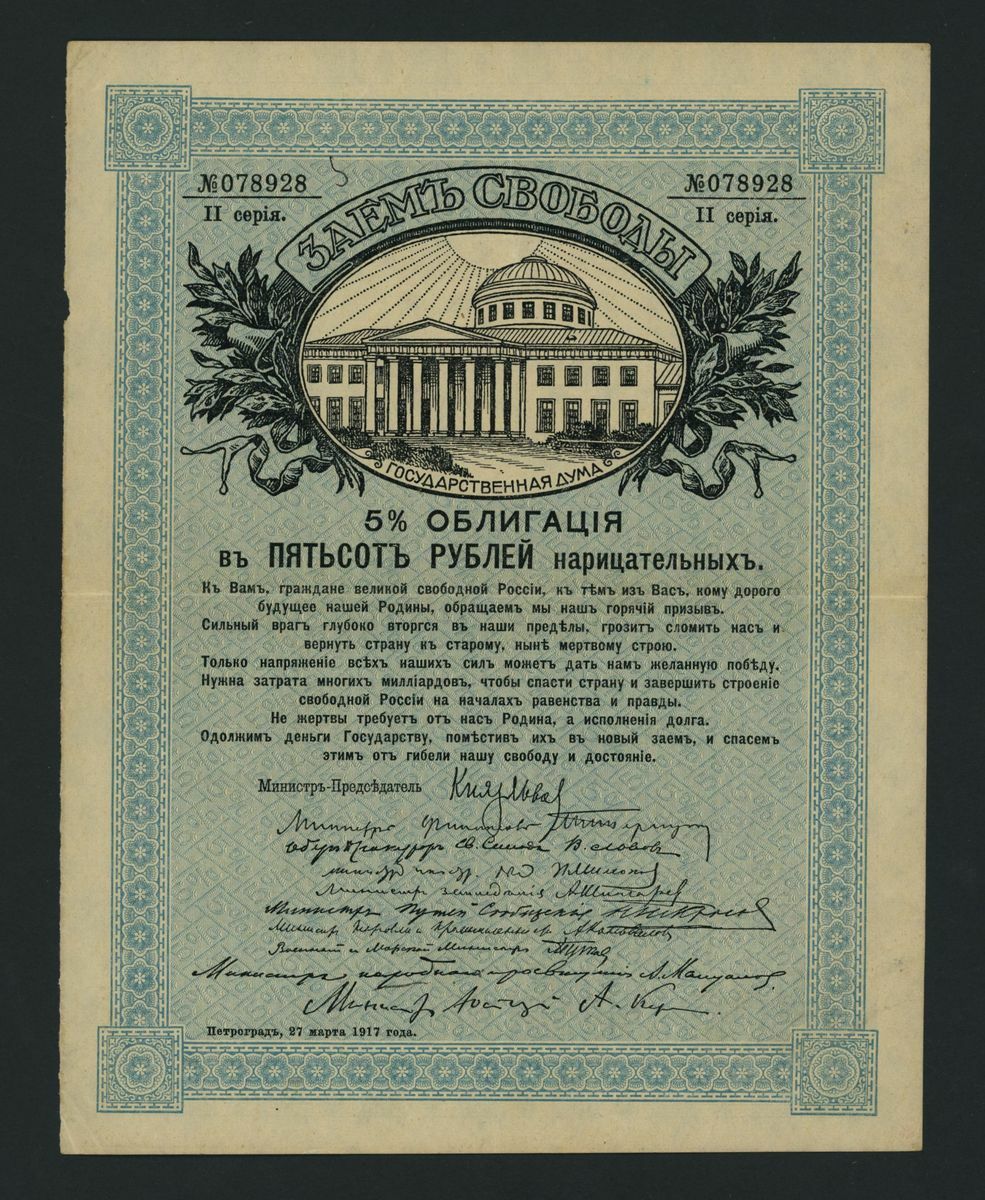 №078928
II серія.
№078928
II серія.
ЗАЕМЪ СВОБОДЫ
ГОСУДАРСТВЕННАЯ ДУМА
5% ОБЛИГАЦІЯ
въ ПЯТЬСОТЪ РУБЛЕЙ нарицательныхъ.
Къ Вамъ, граждане великой свободной Россіи, къ тѣмъ изъ Васъ, кому дорого
будущее нашей Родины, обращаемъ мы нашъ горячій призывъ.
Сильный врагъ глубоко вторгся въ наши предѣлы, грозитъ сломить насъ и
вернуть страну къ старому, нынѣ мертвому строю.
Только напряженіе всѣхъ нашихъ силъ можетъ дать намъ желанную побѣду.
Нужна затрата многихъ милліардовъ, чтобы спасти страну и завершить строеніе
свободной Россіи на началахъ равенства и правды.
Не жертвы требуетъ отъ насъ Родина, а исполненія долга.
Одолжимъ деньги Государству, помѣстивъ ихъ въ новый заемъ, и спасемъ
этимъ отъ гибели нашу свободу и достояніе.
Министръ-Предсѣдатель Князь Львов
Министръ финансовъ
Оберъ Прокуроръ Св. Синода В. Львовъ
Министръ земледѣлія А. Шингарев
Министръ Путей Сообщенія Н. Некрасов
Министръ Торговли и Промышленности А. Коновалов
Военный и Морской Министръ
Министръ народнаго просвѣщенія А. Мануйлов.
Министръ Юстиціи А. Кер
Петроградъ, 27 марта 1917 года.